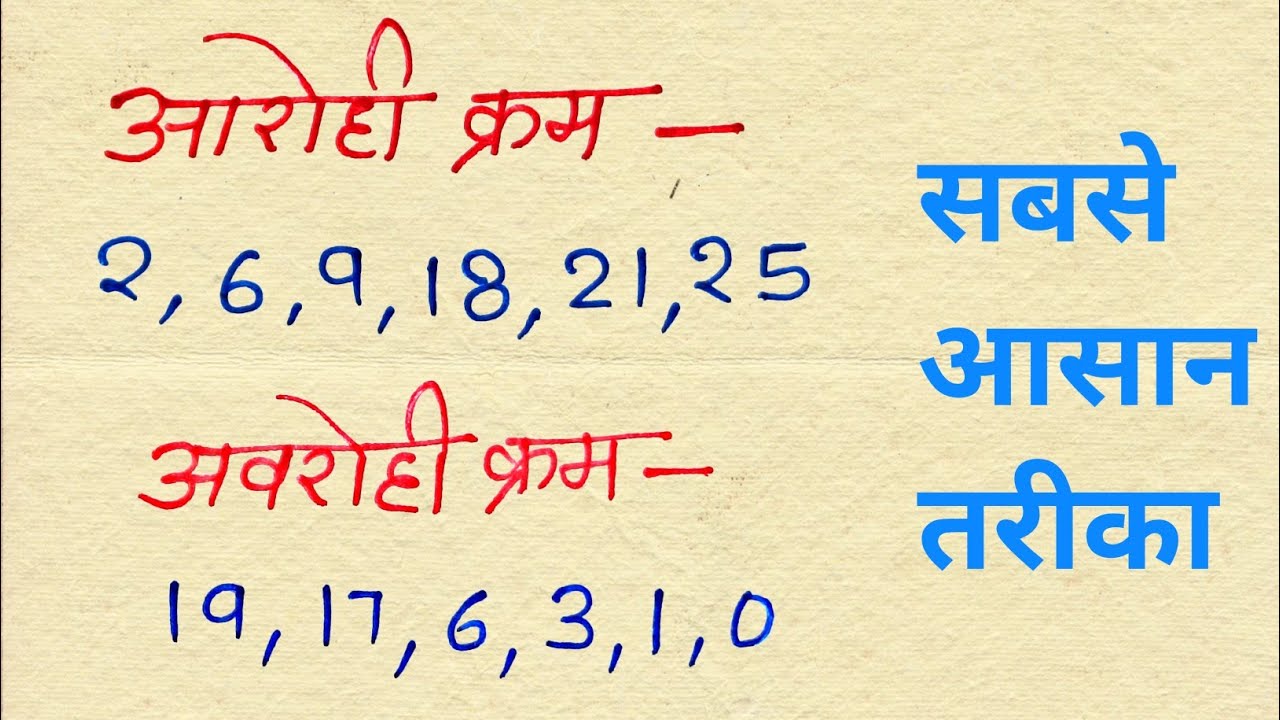 आरोही क्रम –
2, 6, 9, 18, 21, 25
अवरोही क्रम –
19, 17, 6, 3, 1, 0
सबसे
आसान
तरीका